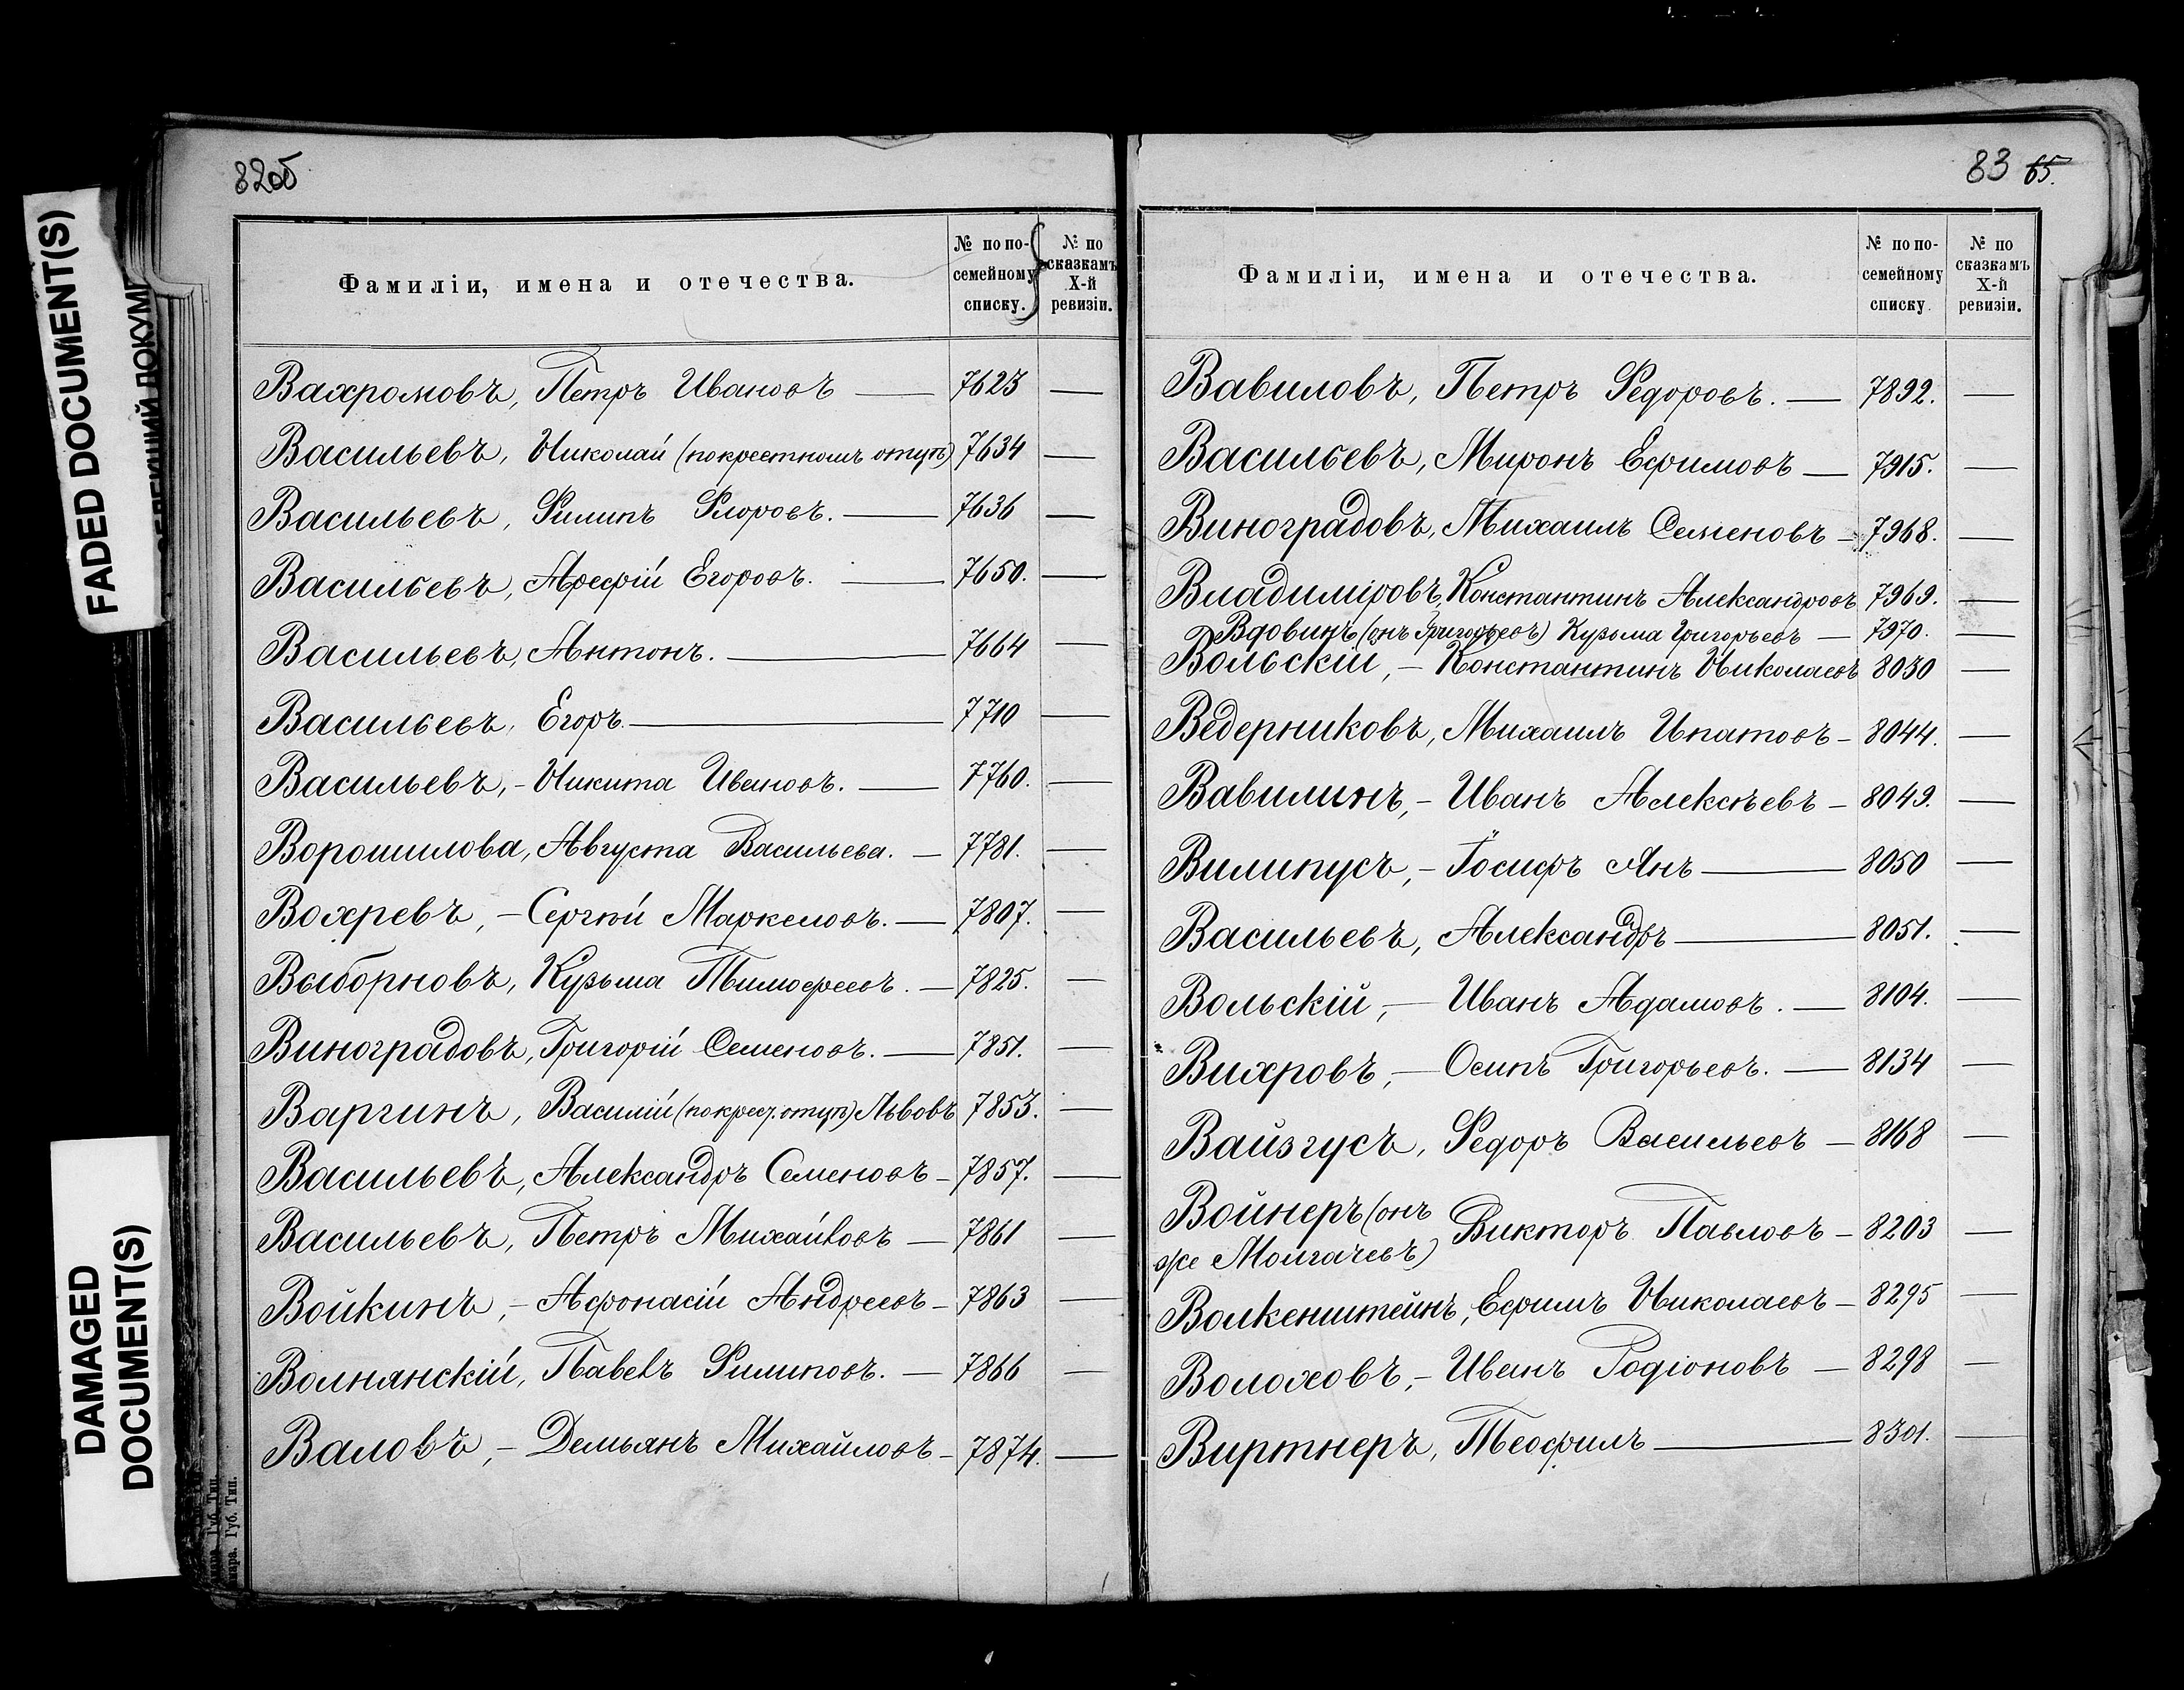 82об
Фамиліи, имена и отечества.
№ по по-
семейному
списку.
№ по
сказкамъ
X-й
ревизіи.
Вахромовъ, Петръ Ивановъ — 7623 —
Васильевъ, Николай (по крестномъ отцѣ) 7634 —
Васильевъ, Филипъ Флоровъ. — 7636 —
Васильевъ, Арефій Егоровъ. — 7650. —
Васильевъ, Антонъ. — 7664 —
Васильевъ, Егоръ. — 7710 —
Васильевъ, - Никита Ивановъ. — 7760. —
Ворошилова, Августа Васильева. — 7781. —
Вохревъ, - Сергѣй Маркеловъ. — 7807. —
Выборновъ, Кузьма Тимофеевъ. — 7825. —
Виноградовъ, Григорій Семеновъ. — 7851. —
Варгинъ, Василій (по крест. отцѣ) Львовъ 7853. —
Васильевъ, Александръ Семеновъ - 7857. —
Васильевъ, Петръ Михайловъ — 7861 —
Войкинъ, - Афонасій Андреевъ - 7863 —
Волнянскій, Павелъ Филиповъ. — 7866 —
Валовъ, - Демьянъ Михайловъ - 7874. —
83 65.
Фамиліи, имена и отечества.
№ по по-
семейному
списку
№ по
сказкамъ
X-й
ревизіи.
Вавиловъ, Петръ Федоровъ. — 7892. —
Васильевъ, Миронъ Ефимовъ — 7915. —
Виноградовъ, Михаилъ Семеновъ - 7968. —
Владиміровъ, Константинъ Александровъ 7969. —
Вдовинъ (онъ Григорьевъ) Кузьма Григорьевъ — 7970. —
Вольскій, - Константинъ Николаевъ 8030 —
Ведерниковъ, Михаилъ Ипатовъ - 8044. —
Вавилинъ, - Иванъ Алексѣевъ - 8049. —
Вилипусъ, - Іосифъ Янъ — 8050 —
Васильевъ, Александръ — 8051. —
Вольскій, — Иванъ Адамовъ. — 8104. —
Вихровъ, — Осипъ Григорьевъ. — 8134 —
Вайзгусъ, Федоръ Васильевъ — 8168 —
Войнеръ (онъ
же Молгачевъ) Викторъ Павловъ - 8203 —
Волкенштейнъ, Ефимъ Николаевъ - 8295 —
Волоховъ, - Иванъ Родіоновъ — 8298 —
Виртнеръ, Теофилъ — 8301. —
FADED DOCUMENT(S)
DAMAGED
DOCUMENT(S)
Губ. Тип.
Губ. Тип.